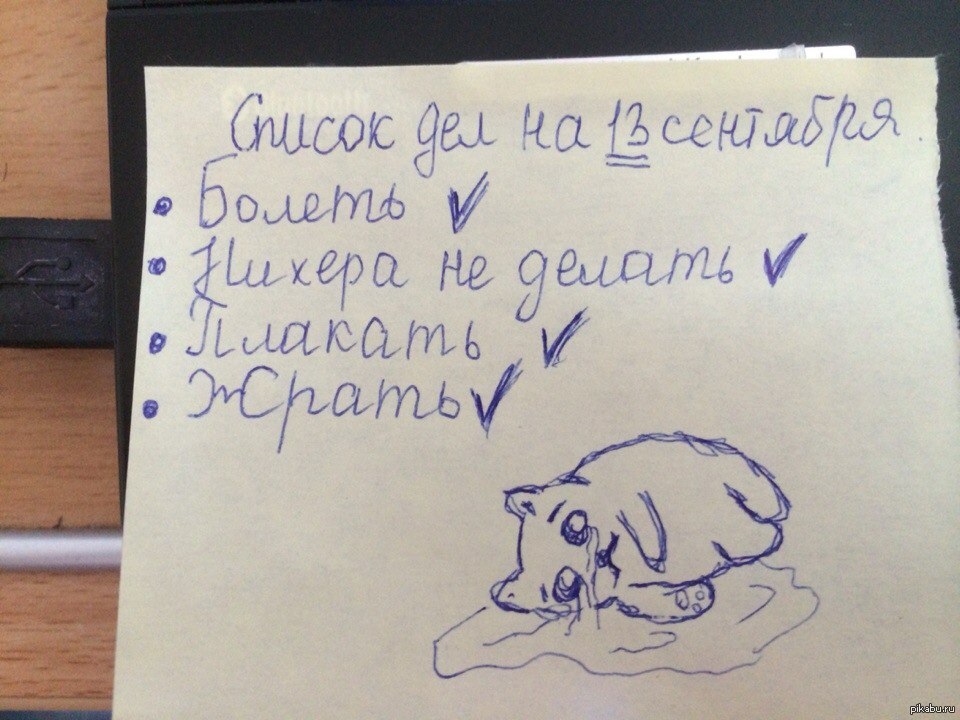 Список дел на 13 сентября.
• Болеть ✓
• Нихера не делать ✓
• Плакать ✓
• Жрать ✓
pikabu.ru